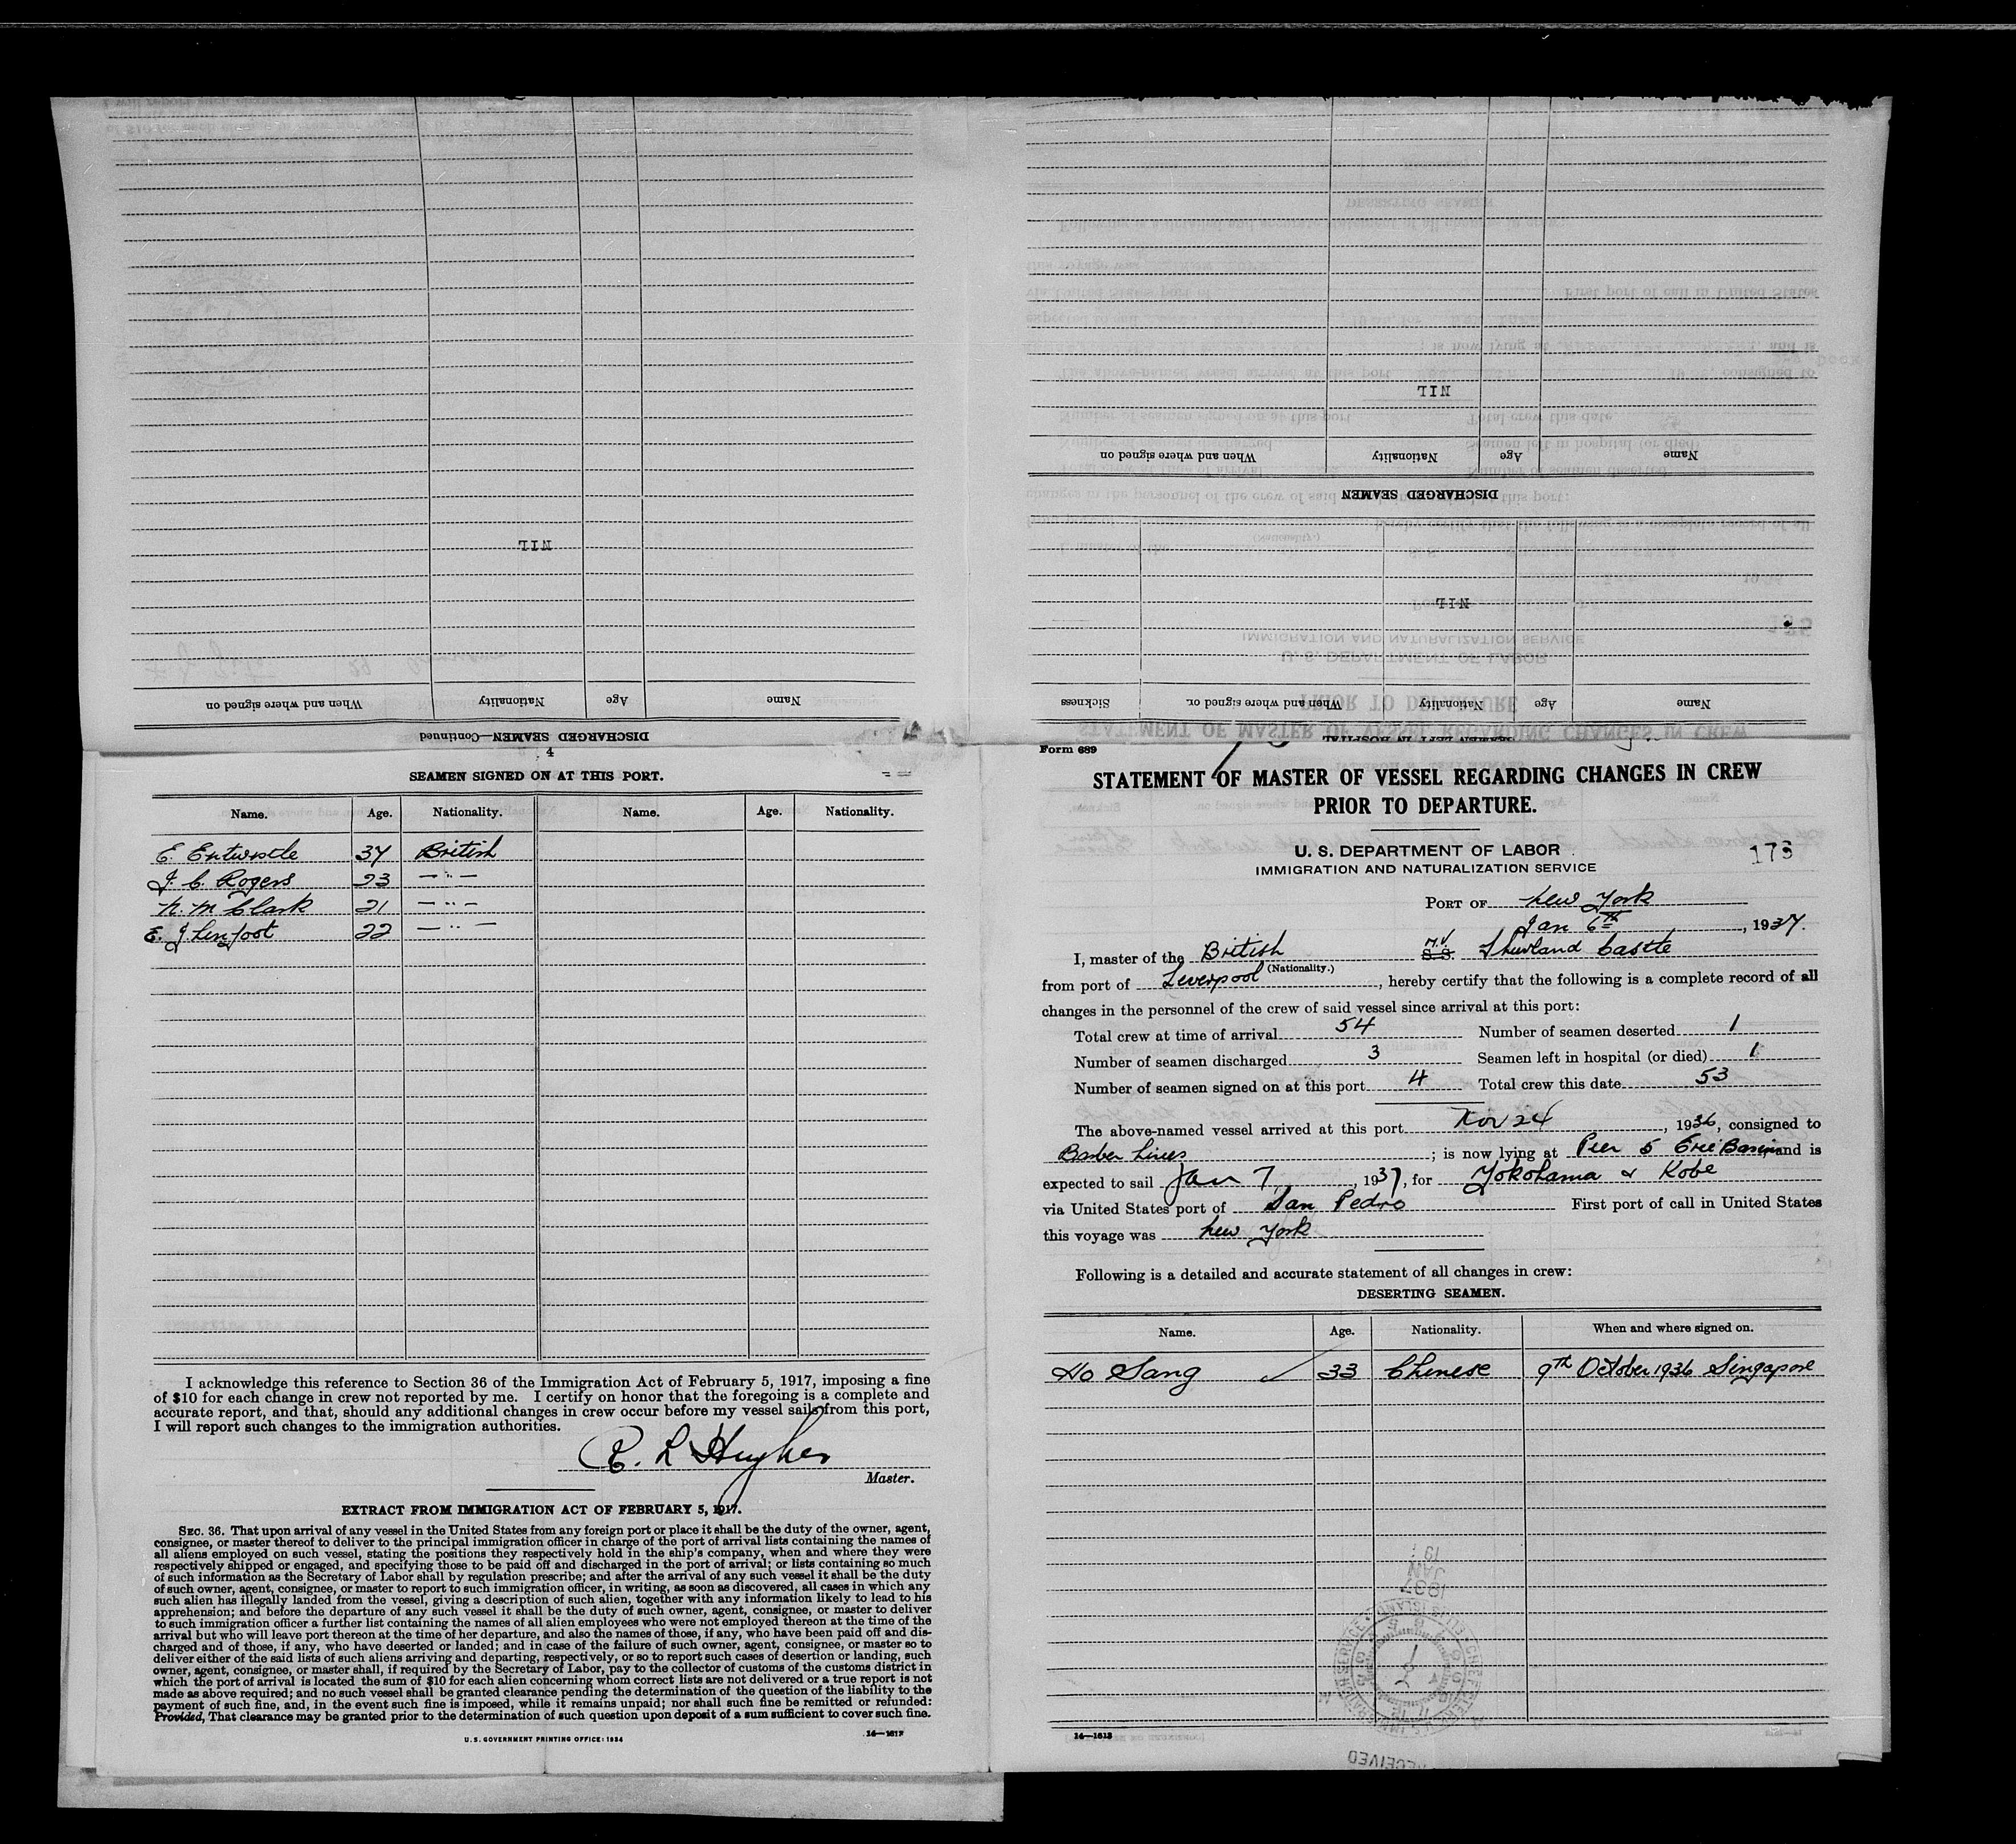 DISCHARGED SEAMEN—Continued
Name Age Nationality When and where signed on
NIL
Name Age Nationality When and where signed on. Sickness
NIL
DISCHARGED SEAMEN
Name Age Nationality When and where signed on
NIL
4
SEAMEN SIGNED ON AT THIS PORT.
Name. Age. Nationality. Name. Age. Nationality.
E. Entwistle 37 British
J. C. Rogers 23 — " —
N. M Clark 21 — " —
E. J Linfoot 22 — " —
I acknowledge this reference to Section 36 of the Immigration Act of February 5, 1917, imposing a fine
of $10 for each change in crew not reported by me. I certify on honor that the foregoing is a complete and
accurate report, and that, should any additional changes in crew occur before my vessel sails from this port,
I will report such changes to the immigration authorities.
R. L Hughes
Master.
EXTRACT FROM IMMIGRATION ACT OF FEBRUARY 5, 1917.
SEC. 36. That upon arrival of any vessel in the United States from any foreign port or place it shall be the duty of the owner, agent,
consignee, or master thereof to deliver to the principal immigration officer in charge of the port of arrival lists containing the names of
all aliens employed on such vessel, stating the positions they respectively hold in the ship's company, when and where they were
respectively shipped or engaged, and specifying those to be paid off and discharged in the port of arrival; or lists containing so much
of such information as the Secretary of Labor shall by regulation prescribe; and after the arrival of any such vessel it shall be the duty
of such owner, agent, consignee, or master to report to such immigration officer, in writing, as soon as discovered, all cases in which any
such alien has illegally landed from the vessel, giving a description of such alien, together with any information likely to lead to his
apprehension; and before the departure of any such vessel it shall be the duty of such owner, agent, consignee, or master to deliver
to such immigration officer a further list containing the names of all alien employees who were not employed thereon at the time of the
arrival but who will leave port thereon at the time of her departure, and also the names of those, if any, who have been paid off and dis-
charged and of those, if any, who have deserted or landed; and in case of the failure of such owner, agent, consignee, or master so to
deliver either of the said lists of such aliens arriving and departing, respectively, or so to report such cases of desertion or landing, such
owner, agent, consignee, or master shall, if required by the Secretary of Labor, pay to the collector of customs of the customs district in
which the port of arrival is located the sum of $10 for each alien concerning whom correct lists are not delivered or a true report is not
made as above required; and no such vessel shall be granted clearance pending the determination of the question of the liability to the
payment of such fine, and, in the event such fine is imposed, while it remains unpaid; nor shall such fine be remitted or refunded:
Provided, That clearance may be granted prior to the determination of such question upon deposit of a sum sufficient to cover such fine.
U.S. GOVERNMENT PRINTING OFFICE: 1934 14—1613
Form 689
STATEMENT OF MASTER OF VESSEL REGARDING CHANGES IN CREW
PRIOR TO DEPARTURE.
U. S. DEPARTMENT OF LABOR
IMMIGRATION AND NATURALIZATION SERVICE
173
PORT OF New York
Jan 6th, 1937.
I, master of the British M.V. S.S. Thurland Castle
(Nationality.)
from port of Liverpool, hereby certify that the following is a complete record of all
changes in the personnel of the crew of said vessel since arrival at this port:
Total crew at time of arrival 54 Number of seamen deserted 1
Number of seamen discharged 3 Seamen left in hospital (or died) 1
Number of seamen signed on at this port 4 Total crew this date 53
The above-named vessel arrived at this port Nov 24, 1936, consigned to
Barber Lines; is now lying at Pier 5 Erie Basin and is
expected to sail Jan 7, 1937, for Yokohama & Kobe
via United States port of San Pedro First port of call in United States
this voyage was New York
Following is a detailed and accurate statement of all changes in crew:
DESERTING SEAMEN.
Name. Age. Nationality. When and where signed on.
Ho Sang 33 Chinese 9th October 1936 Singapore
1937
JAN
14—1613
RECEIVED